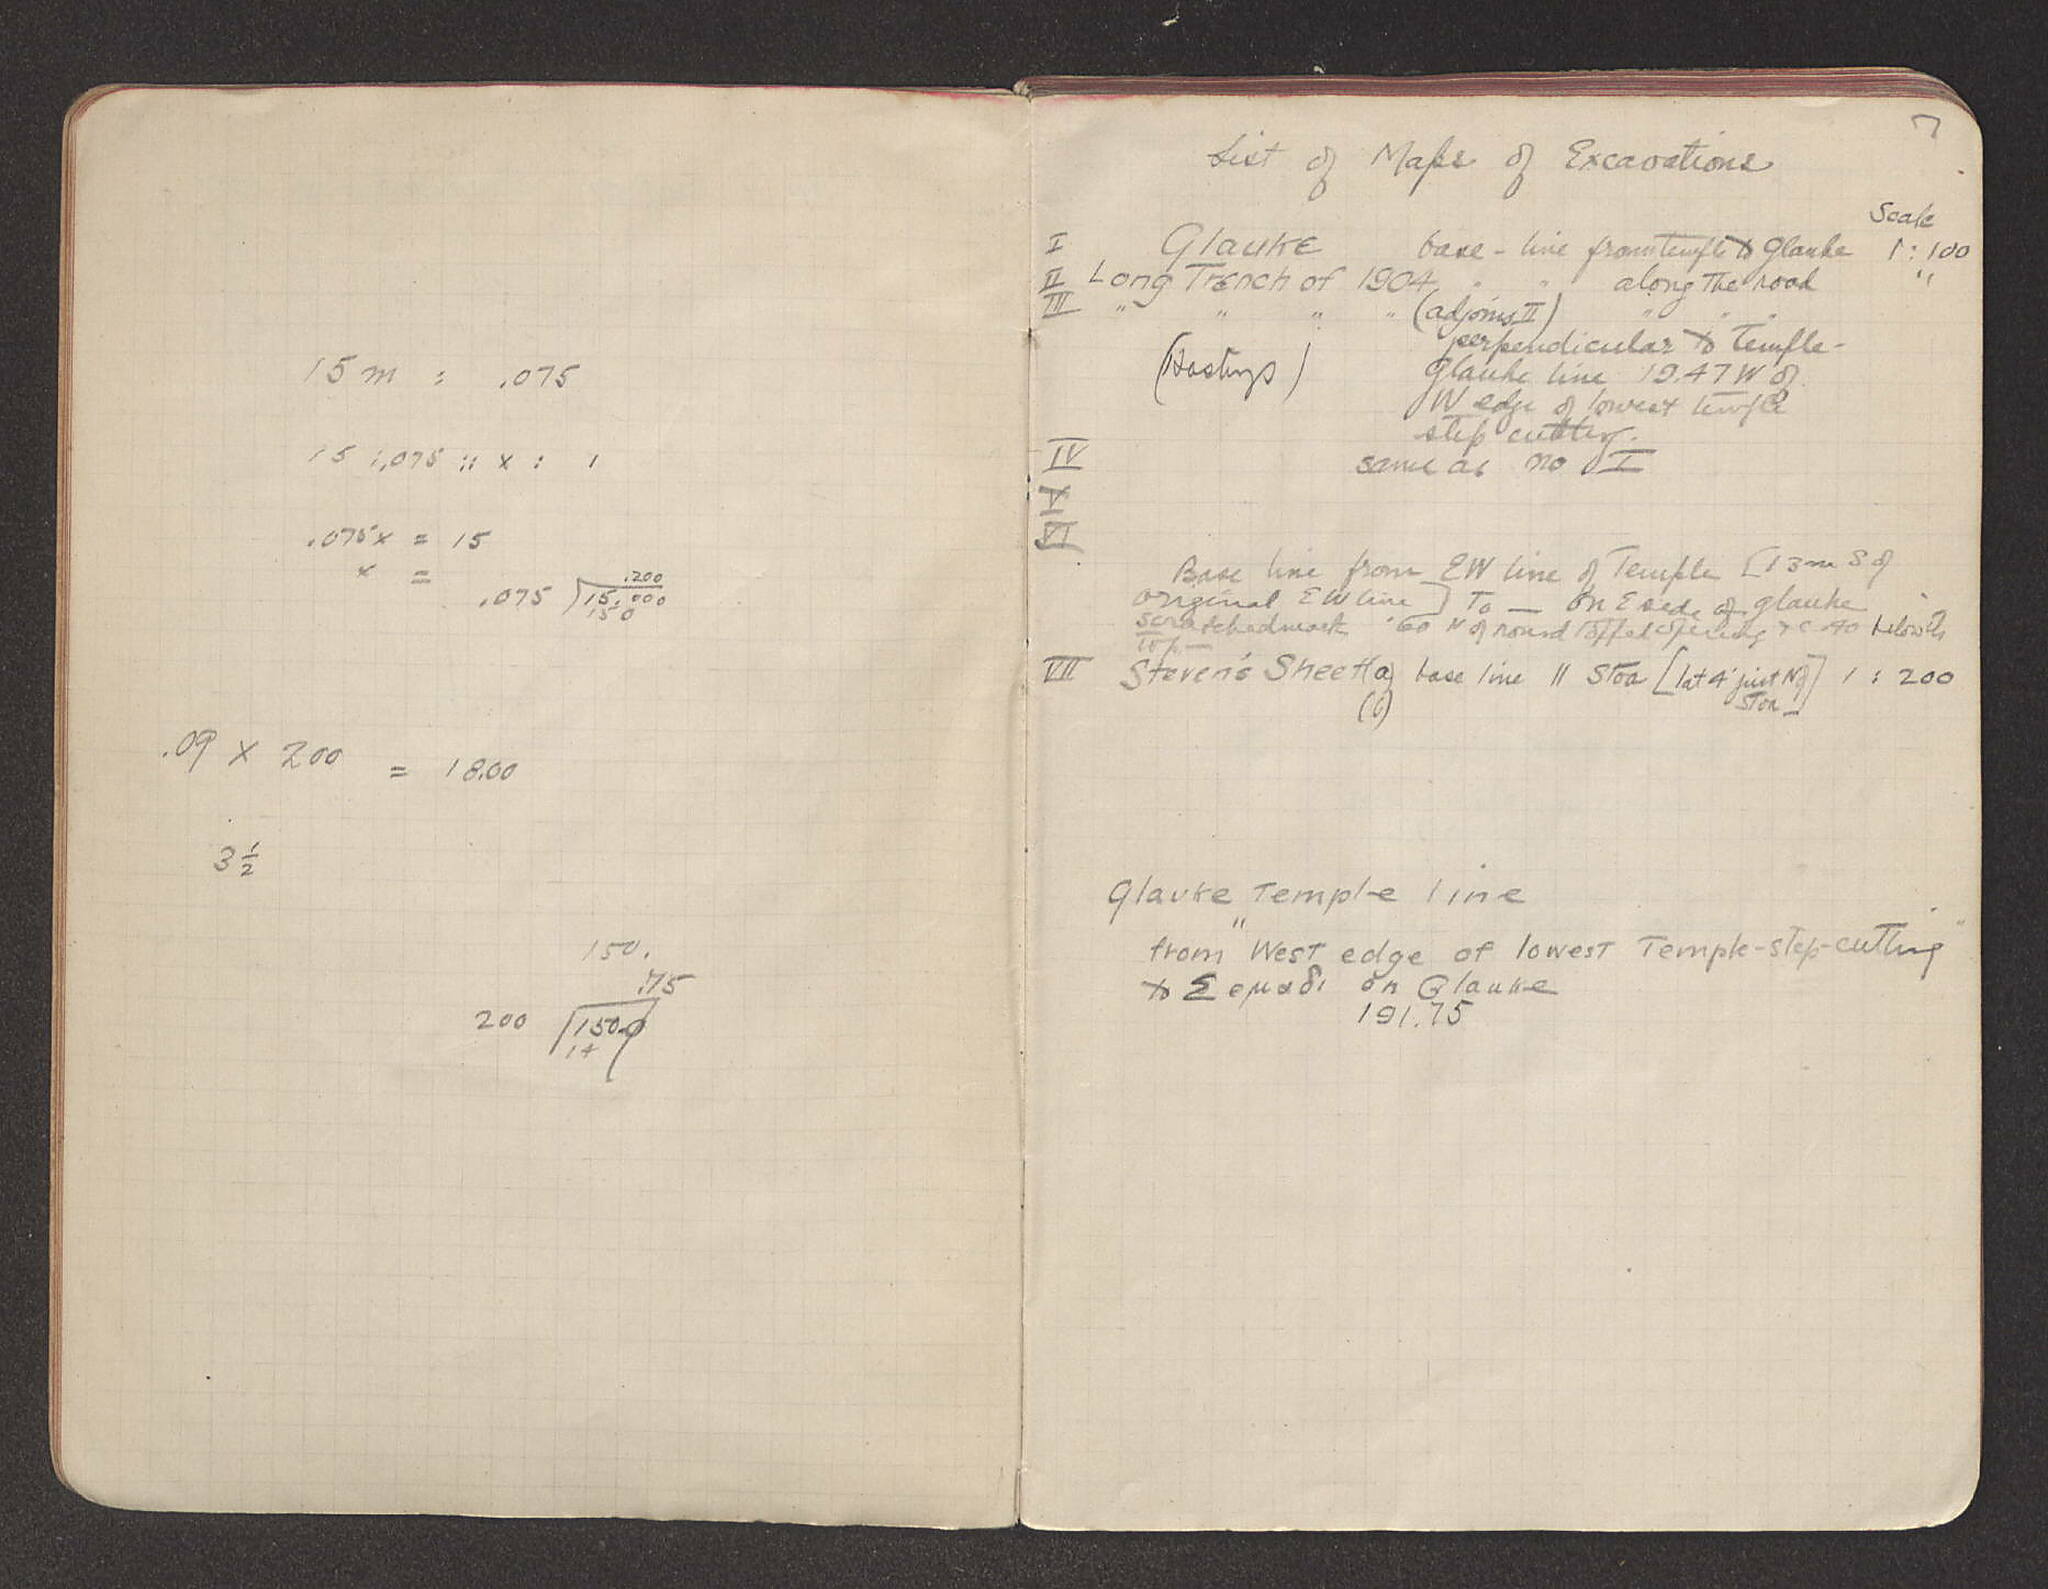 15 m : .075
15 : .075 :: x : 1
.075x = 15
x =
.200
.075 15.000
150
.09 x 200 = 18.00
3 1/2
150.
.75
200 150.0
14
7
List of Maps of Excavations
Scale
I Glauke base-line from temple to Glauke 1:100
II Long Trench of 1904 " " along the road "
III " " " " (adjoins II) " " "
perpendicular to temple-
(Hastings) Glauke line 19.47 W of
W edge of lowest temple
step cutting.
IV same as no I
V
VI
Base line from EW line of Temple [13 m S of
original EW line] To — on E side of Glauke
scratched mark .60 N of round topped opening + c .40 below its
top —
VII Steven's Sheet (a) base line || Stoa [lat 4' just N of 1 : 200
(b) Stoa]
Glauke Temple line
from "West edge of lowest Temple-step-cutting"
to Σεμαδι on Glauke
191.75